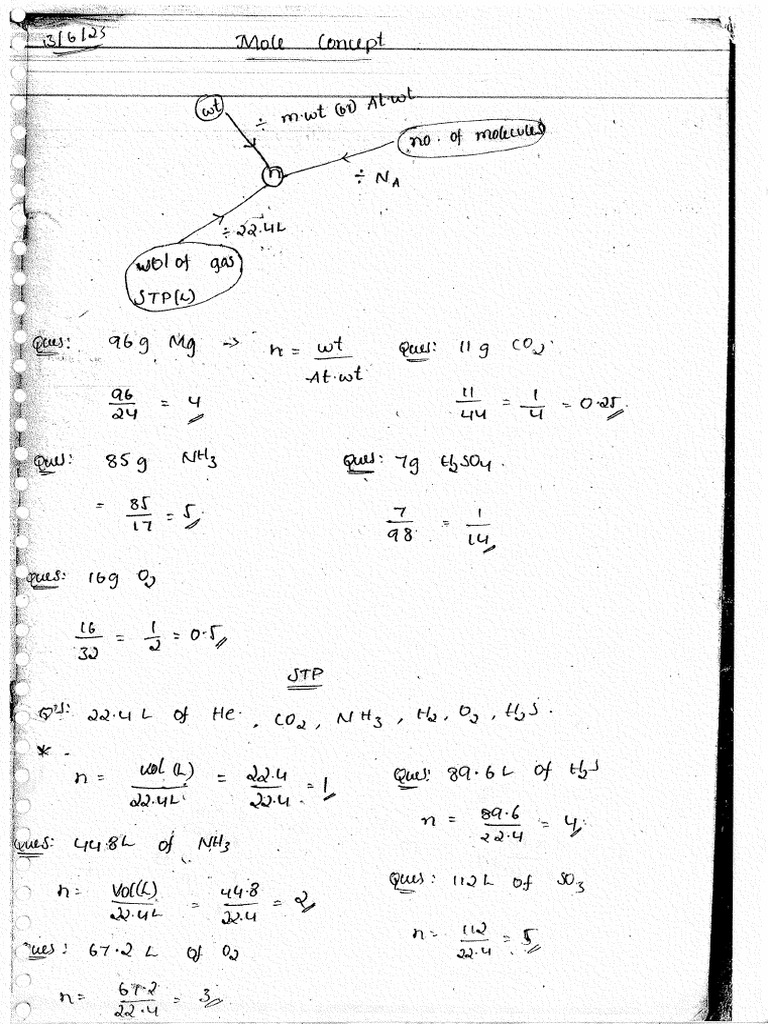 13/6/23
Mole Concept
wt
÷ m.wt (or) At.wt
no. of molecules
n
÷ NA
÷ 22.4L
vol of gas
STP(L)
Ques: 96g Mg → n = wt / At.wt
96/24 = 4
Ques: 11g CO2
11/44 = 1/4 = 0.25
Ques: 85g NH3
= 85/17 = 5
Ques: 7g H2SO4.
7/98 = 1/14
Ques: 16g O2
16/32 = 1/2 = 0.5
STP
Q's: 22.4L of He, CO2, NH3, H2, O2, H2S.
* n = vol(L)/22.4L = 22.4/22.4 = 1
Ques: 89.6L of H2S
n = 89.6/22.4 = 4
Ques: 44.8L of NH3
n = Vol(L)/22.4L = 44.8/22.4 = 2
Ques: 112L of SO3
n = 112/22.4 = 5
Ques: 67.2L of O2
n = 67.2/22.4 = 3